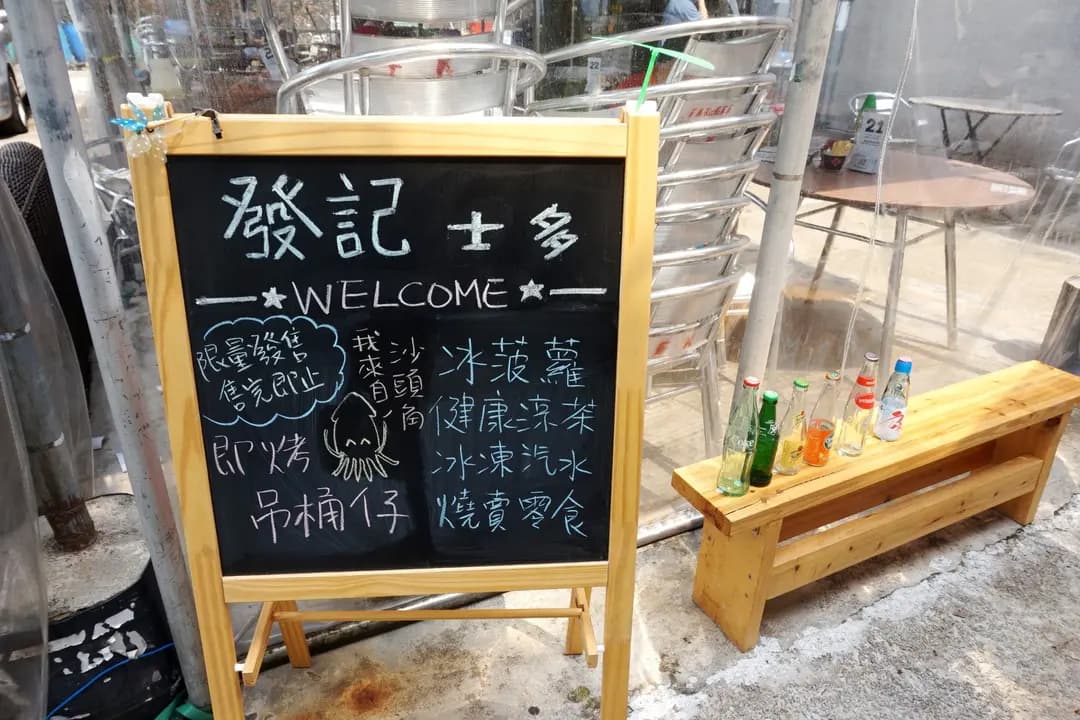 發記 士多
WELCOME
限量發售
售完即止
我來自
沙頭角
即烤
吊桶仔
冰菠蘿
健康涼茶
冰凍汽水
燒賣零食
Coke
21
22